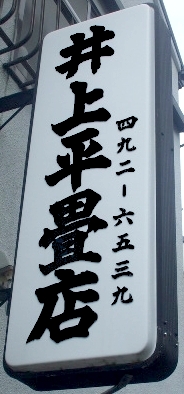 井上平畳店
四九二-六五三九